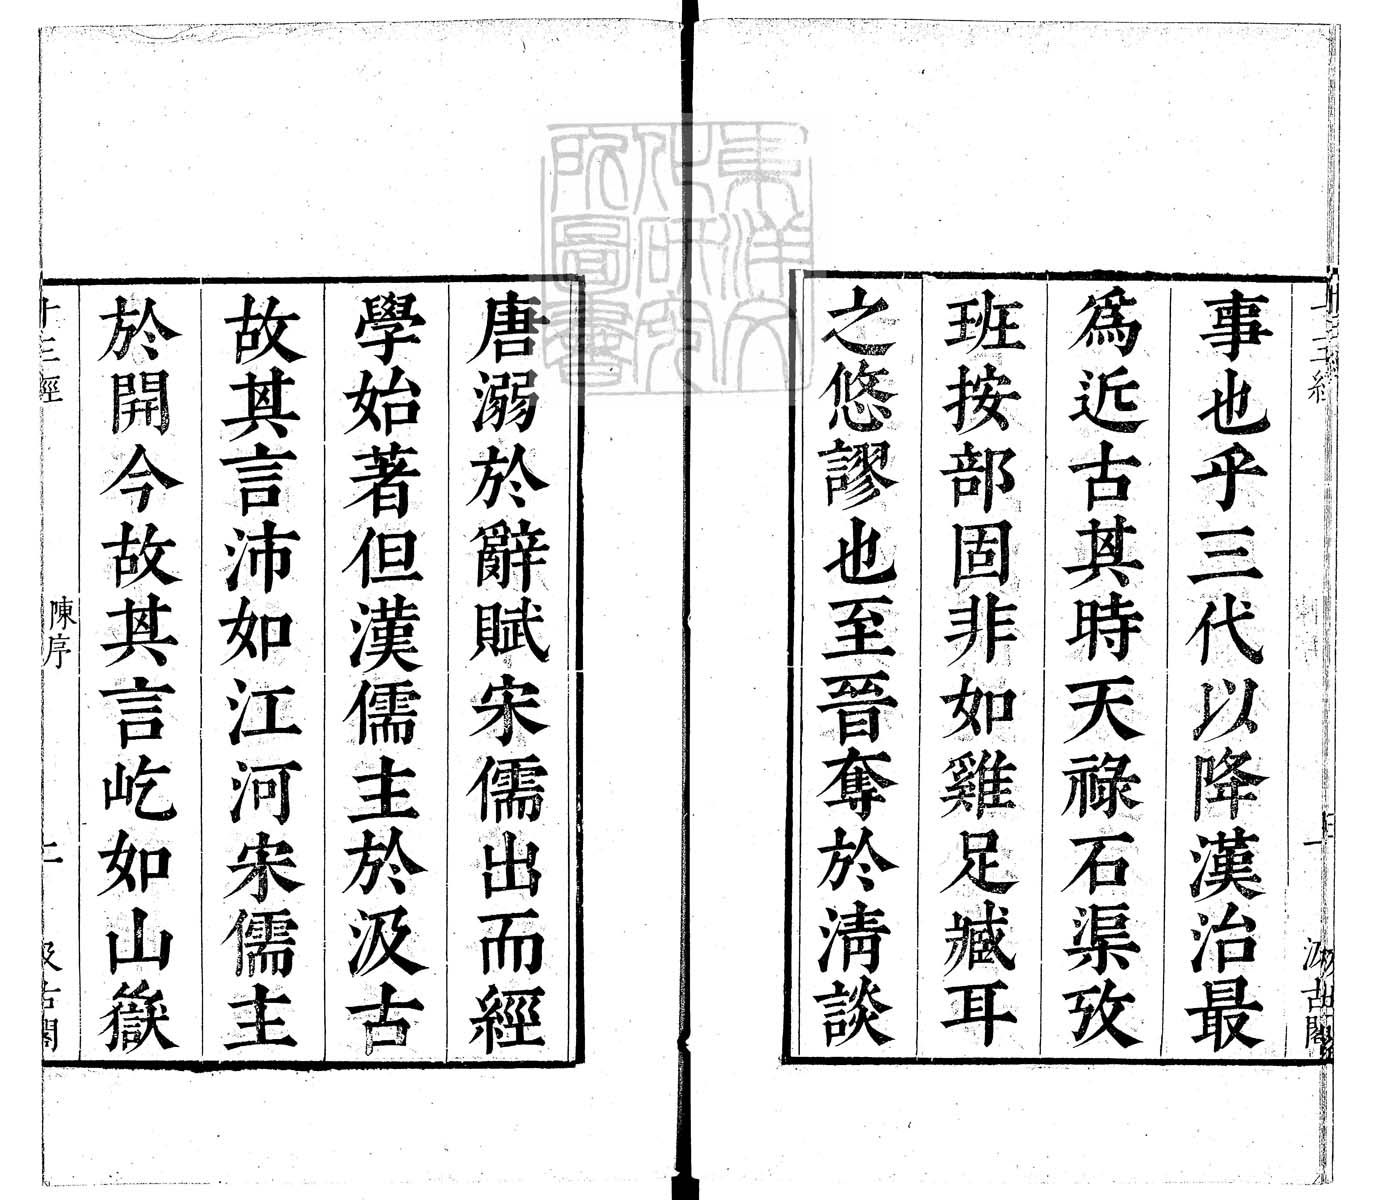 事也乎三代以降漢治最
爲近古其時天祿石渠攷
班按部固非如雞足臧耳
之悠謬也至晉奪於淸談
唐溺於辭賦宋儒出而經
學始著但漢儒主於汲古
故其言沛如江河宋儒主
於開今故其言屹如山嶽
十三經
陳序
二
汲古閣
東洋文
化硏究
所圖書